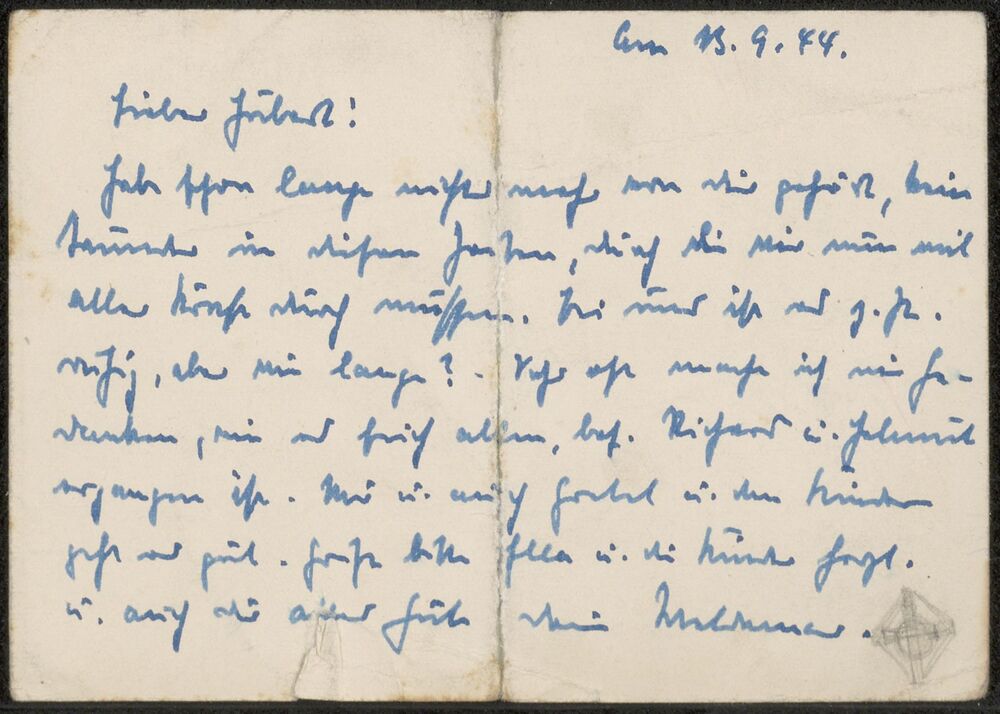 Am 13.9.44.
Lieber Hubert!
Habe schon lange nichts mehr von dir gehört, kein
Wunder in diesen Zeiten, durch die wir nun mit
aller Kraft durch müssen. Bei uns ist es z. Zt.
ruhig, aber wie lange? - Sehr oft mache ich mir Ge-
danken, wie es Euch allen, bes. Richard u. Helmut
ergangen ist. Mir u. auch Gretel u. den Kindern
geht es gut. Grüße bitte Ella u. die Kinder herzl.
u. auch dir alles Gute dein Waldemar.